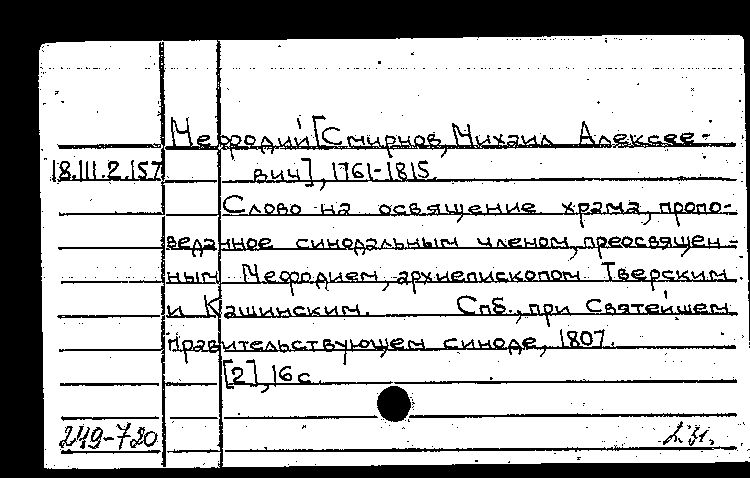 Мефодий [Смирнов, Михаил Алексее-
18.III.2.157 вич], 1761-1815.
Слово на освящение храма, пропо-
веданное синодальным членом, преосвящен-
ным Мефодием, архиепископом Тверским
и Кашинским. Спб., при Святейшем
правительствующем синоде, 1807.
[2], 16 с.
249-720